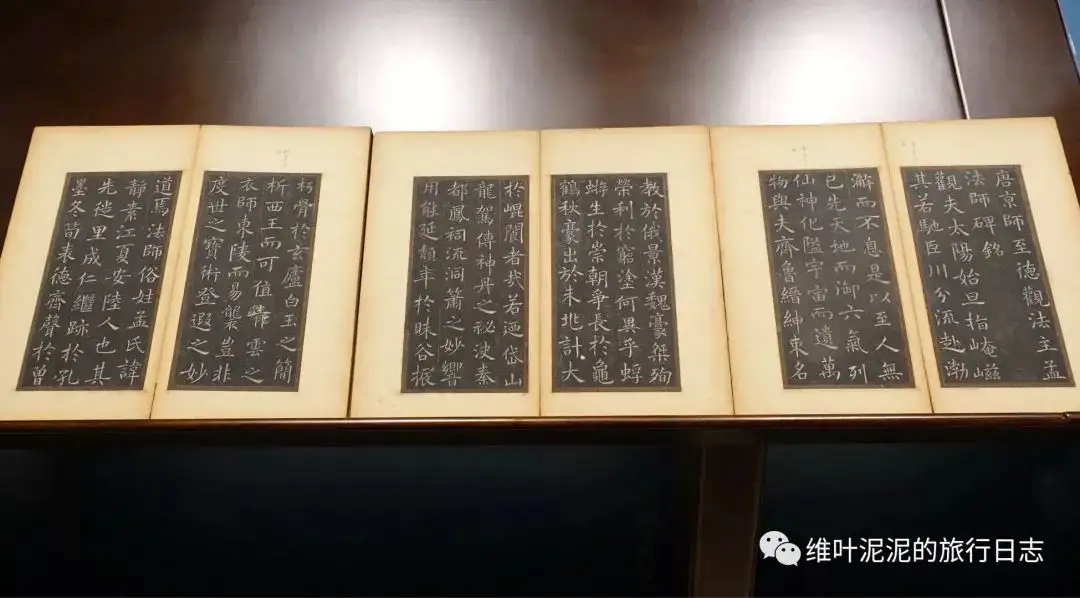 唐京師至德觀法主孟
法師碑銘
觀夫太陽始旦指崦嵫
其若馳巨川分流赴渤
澥而不息是以至人無
已先天地而御六氣列
仙神化隘宇宙而遺萬
物與夫齊魯縉紳束名
教於俄景漢魏豪桀殉
榮利於窮塗何異乎蜉
蝣生於崇朝爭長於龜
鶴秋豪出於未兆計大
於崐閬者哉若迺岱山
龍駕傳神丹之祕決秦
都鳳祠流洞簫之妙響
用能延頹年於昧谷振
朽骨於玄廬白玉之簡
析西王而可值雲之
衣師東陵而易襲豈非
度世之寶術登遐之妙
道焉法師俗姓孟氏諱
靜素江夏安陸人也其
先徙里成仁繼跡於孔
墨冬筍表德齊聲於曾
维叶泥泥的旅行日志